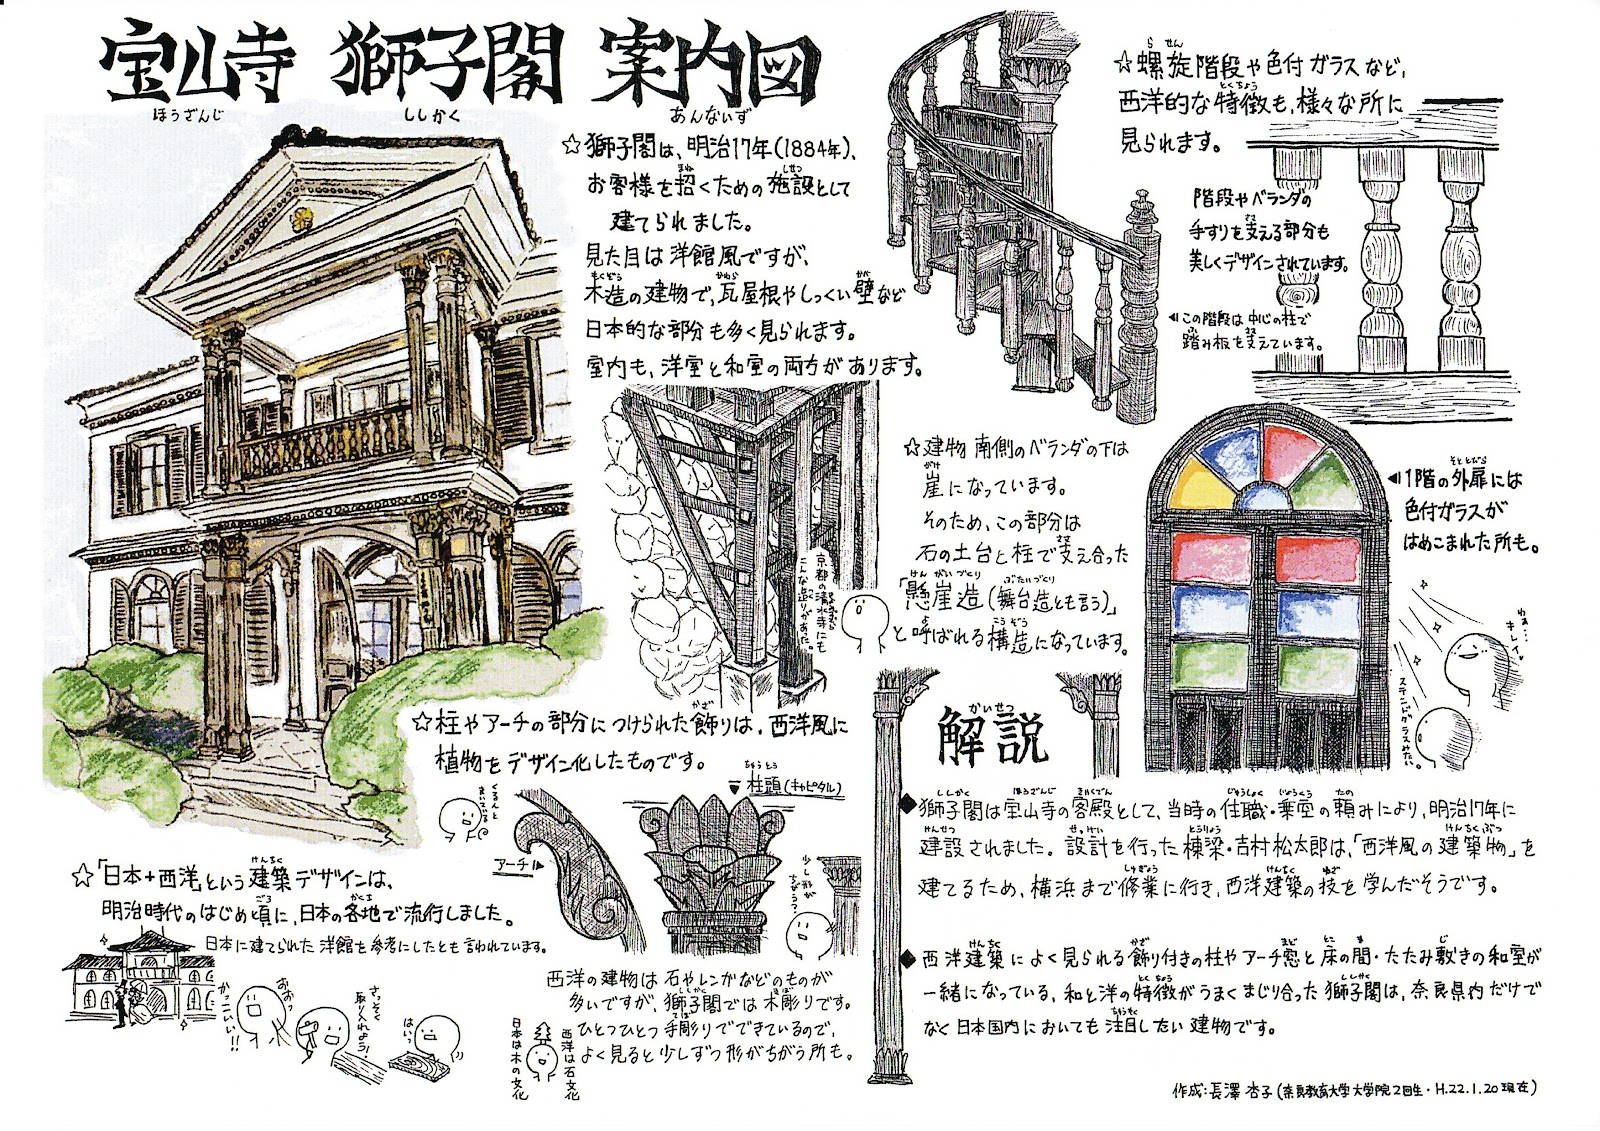 宝山寺 獅子閣 案内図
ほうざんじ ししかく あんないず
☆獅子閣は、明治17年(1884年)、
お客様を招くための施設として
建てられました。
見た目は洋館風ですが、
木造の建物で、瓦屋根やしっくい壁など
日本的な部分も多く見られます。
室内も、洋室と和室の両方があります。
☆螺旋階段や色付ガラスなど、
西洋的な特徴も、様々な所に
見られます。
階段やベランダの
手すりを支える部分も
美しくデザインされています。
◀この階段は中心の柱で
踏み板を支えています。
☆建物南側のベランダの下は
崖になっています。
そのため、この部分は
石の土台と柱で支え合った
「懸崖造(舞台造とも言う)」
と呼ばれる構造になっています。
京都の清水寺にも
こんな造りがあった。
◀1階の外扉には
色付ガラスが
はめこまれた所も。
わぁ…
キレイ♥
ステンドグラスみたい。
☆柱やアーチの部分につけられた飾りは、西洋風に
植物をデザイン化したものです。
▼柱頭(キャピタル)
くるんと
まいている
アーチ▶
少し形が
ちがう?
西洋の建物は石やレンガなどのものが
多いですが、獅子閣では木彫りです。
ひとつひとつ手彫りでできているので、
よく見ると少しずつ形がちがう所も。
西洋は石文化
日本は木の文化
☆「日本+西洋」という建築デザインは、
明治時代のはじめ頃に、日本の各地で流行しました。
日本に建てられた洋館を参考にしたとも言われています。
かっこいい!!
おおっ
さっそく
取り入れよう!
はいっ
解説
かいせつ
◆獅子閣は宝山寺の客殿として、当時の住職・乗空の頼みにより、明治17年に
建設されました。設計を行った棟梁・吉村松太郎は、「西洋風の建築物」を
建てるため、横浜まで修業に行き、西洋建築の技を学んだそうです。
◆西洋建築によく見られる飾り付きの柱やアーチ窓と床の間・たたみ敷きの和室が
一緒になっている、和と洋の特徴がうまくまじり合った獅子閣は、奈良県内だけで
なく日本国内においても注目したい建物です。
作成:長澤 杏子(奈良教育大学大学院2回生・H.22.1.20現在)